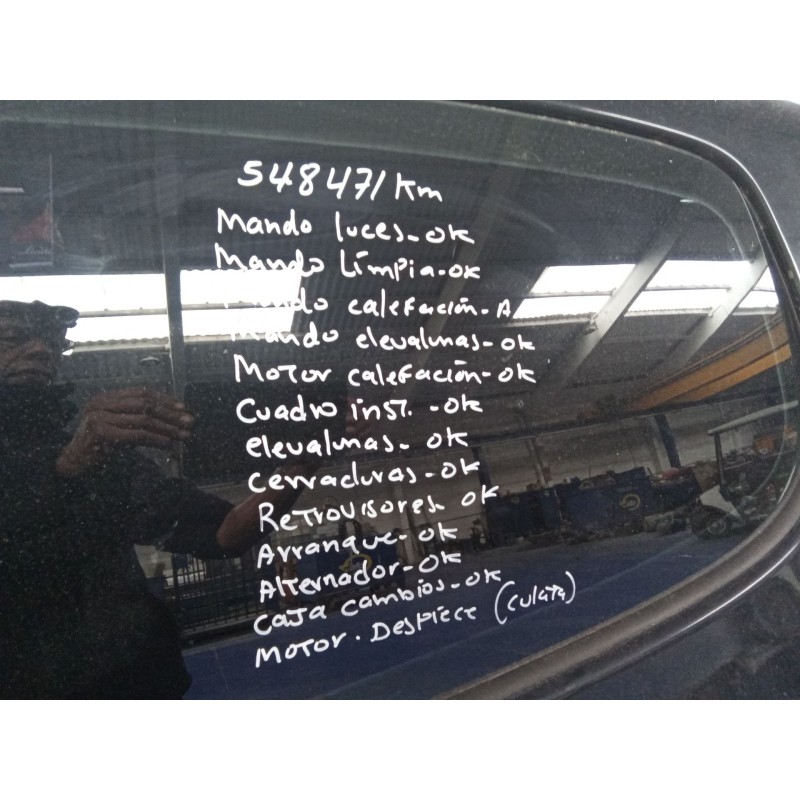 548471 Km
Mando luces-OK
Mando Limpia-OK
Mando calefación-A
Mando elevalunas-OK
Motor calefación-OK
Cuadro inst.-OK
elevalunas-OK
cerraduras-OK
Retrovisores OK
Arranque-OK
Alternador-OK
Caja cambios-OK
Motor. Despiece (culata)